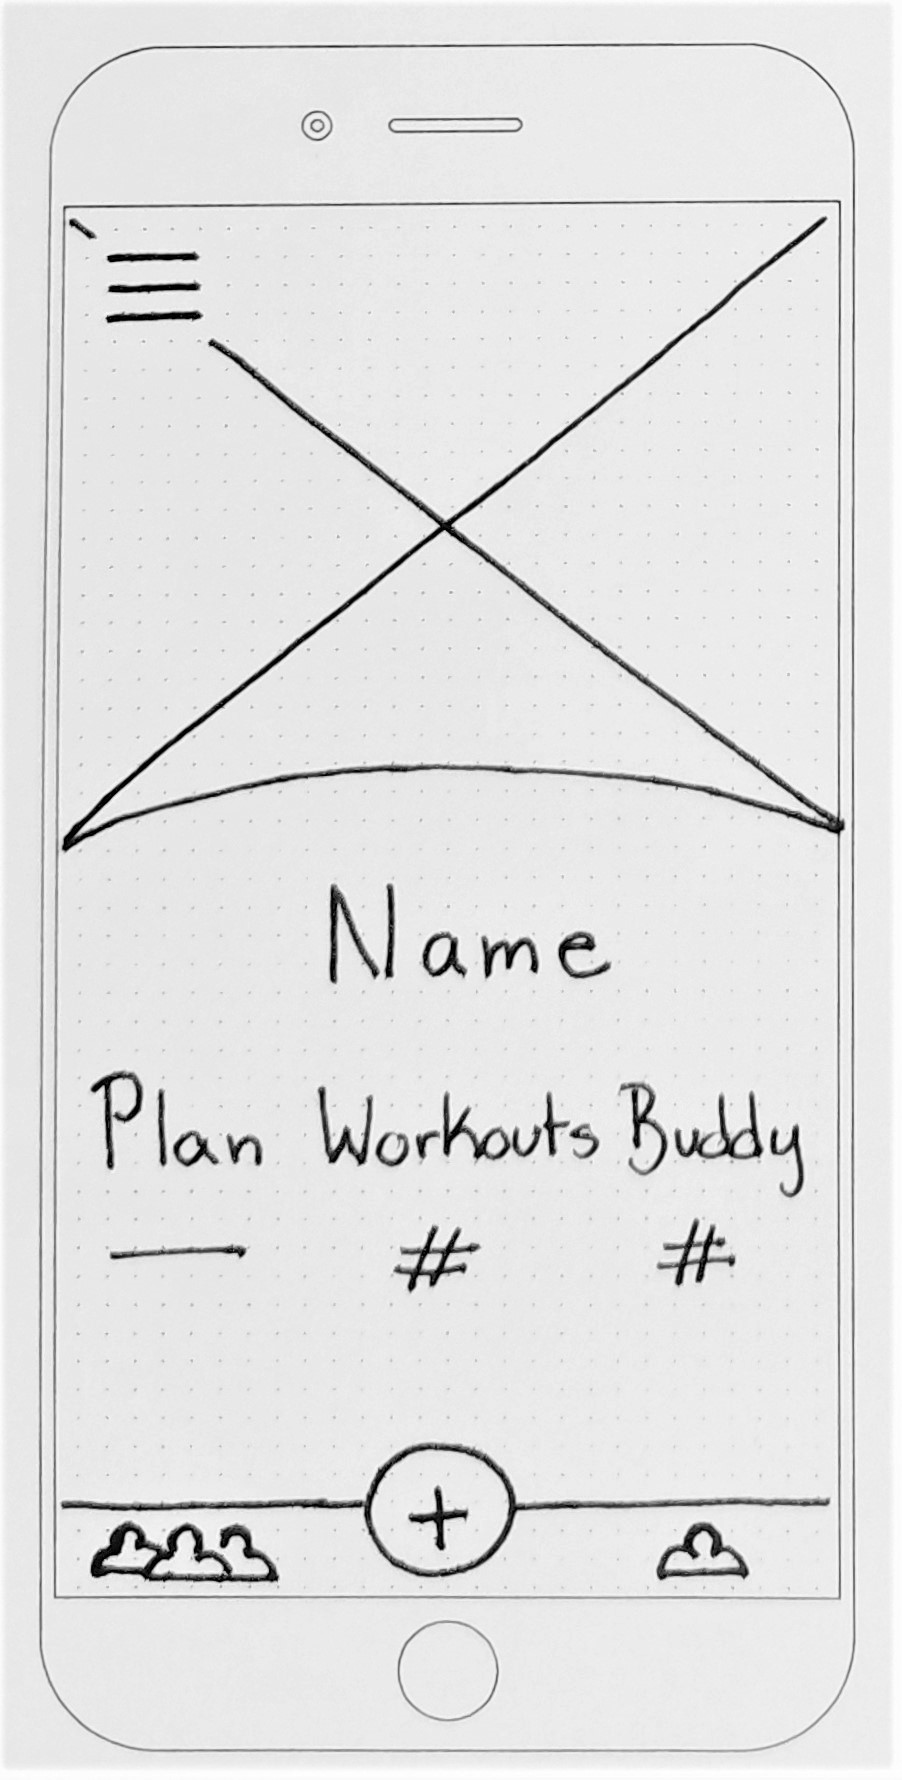 Name
Plan Workouts Buddy
— # #
+